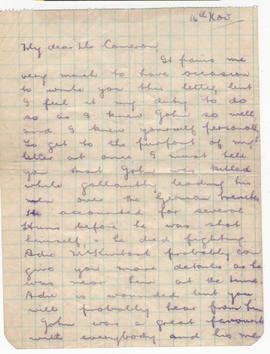 16th Nov
My dear Mr Cameron,
It pains me
very much to have occasion
to write you this letter but
I feel it my duty to do
so as I knew John so well
and I knew yourself personally
To get to the purport of my
letter at once I must tell
you that John was killed
while gallantly leading his
men over the German trenches
He accounted for several
Huns before he was shot
himself. He died fighting
probably can
give you more details as he
was near him at the time
is wounded but you
will probably hear from him
John was a great favourite
with everybody and his